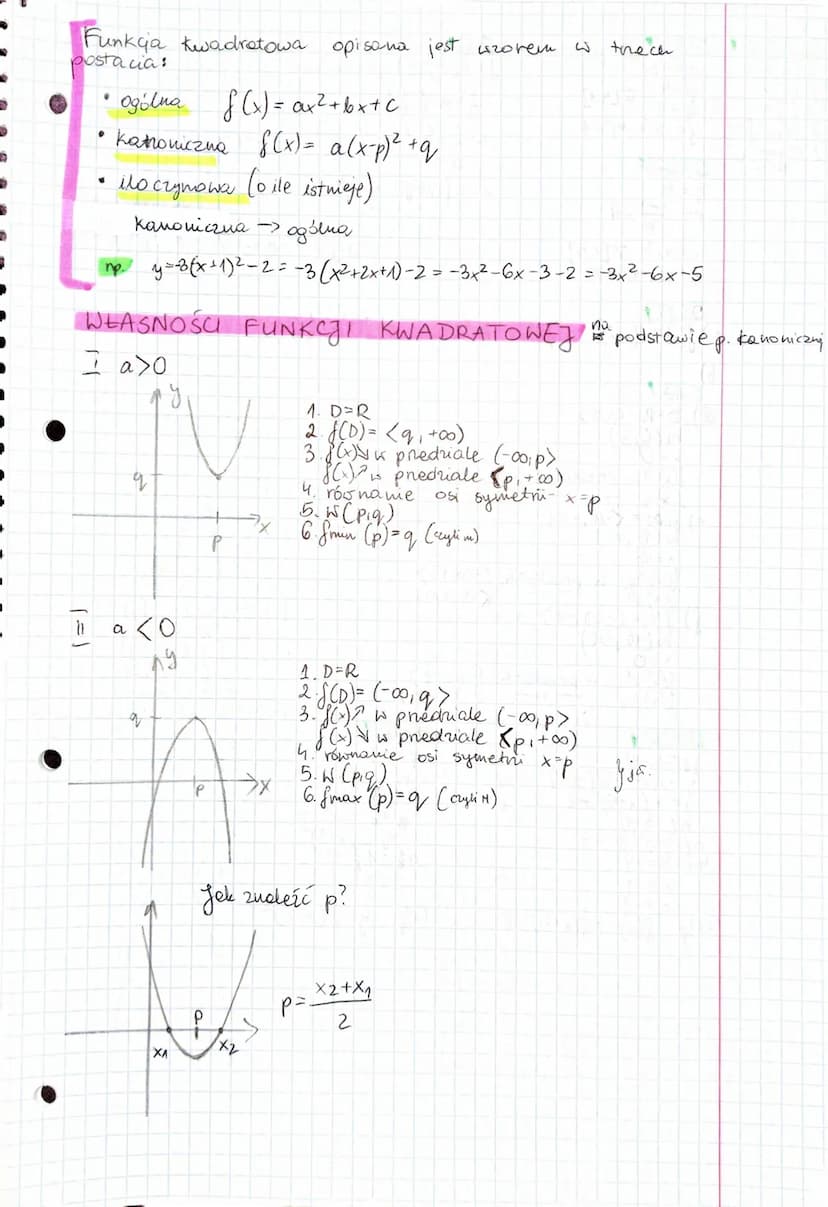 Funkcja kwadratowa opisana jest wzorem w trzech
postacia:
• ogólna f(x) = ax²+bx+c
• kanoniczna f(x) = a(x-p)² +q
• iloczynowa (o ile istnieje)
kanoniczna -> ogólna
np. y=-3(x+1)²-2 = -3(x²+2x+1)-2 = -3x²-6x-3-2 = -3x²-6x-5
WŁASNOŚCI FUNKCJI KWADRATOWEJ na podstawie p. kanonicznej
I a>0
y
q
p
x
1. D=R
2. f(D)= <q, +∞)
3. f(x)↘ w przedziale (-∞,p>
f(x)↗ w przedziale <p,+∞)
4. równanie osi symetrii- x=p
5. W(p,q)
6. fmin (p)=q (czyli m)
II a<0
y
q
p
x
1. D=R
2. f(D)= (-∞,q>
3. f(x)↗ w przedziale (-∞,p>
f(x)↘ w przedziale <p,+∞)
4. równanie osi symetrii x=p
5. W(p,q)
6. fmax (p)=q (czyli M)
Jak znaleźć p?
p
x1
x2
p= x2+x1
2